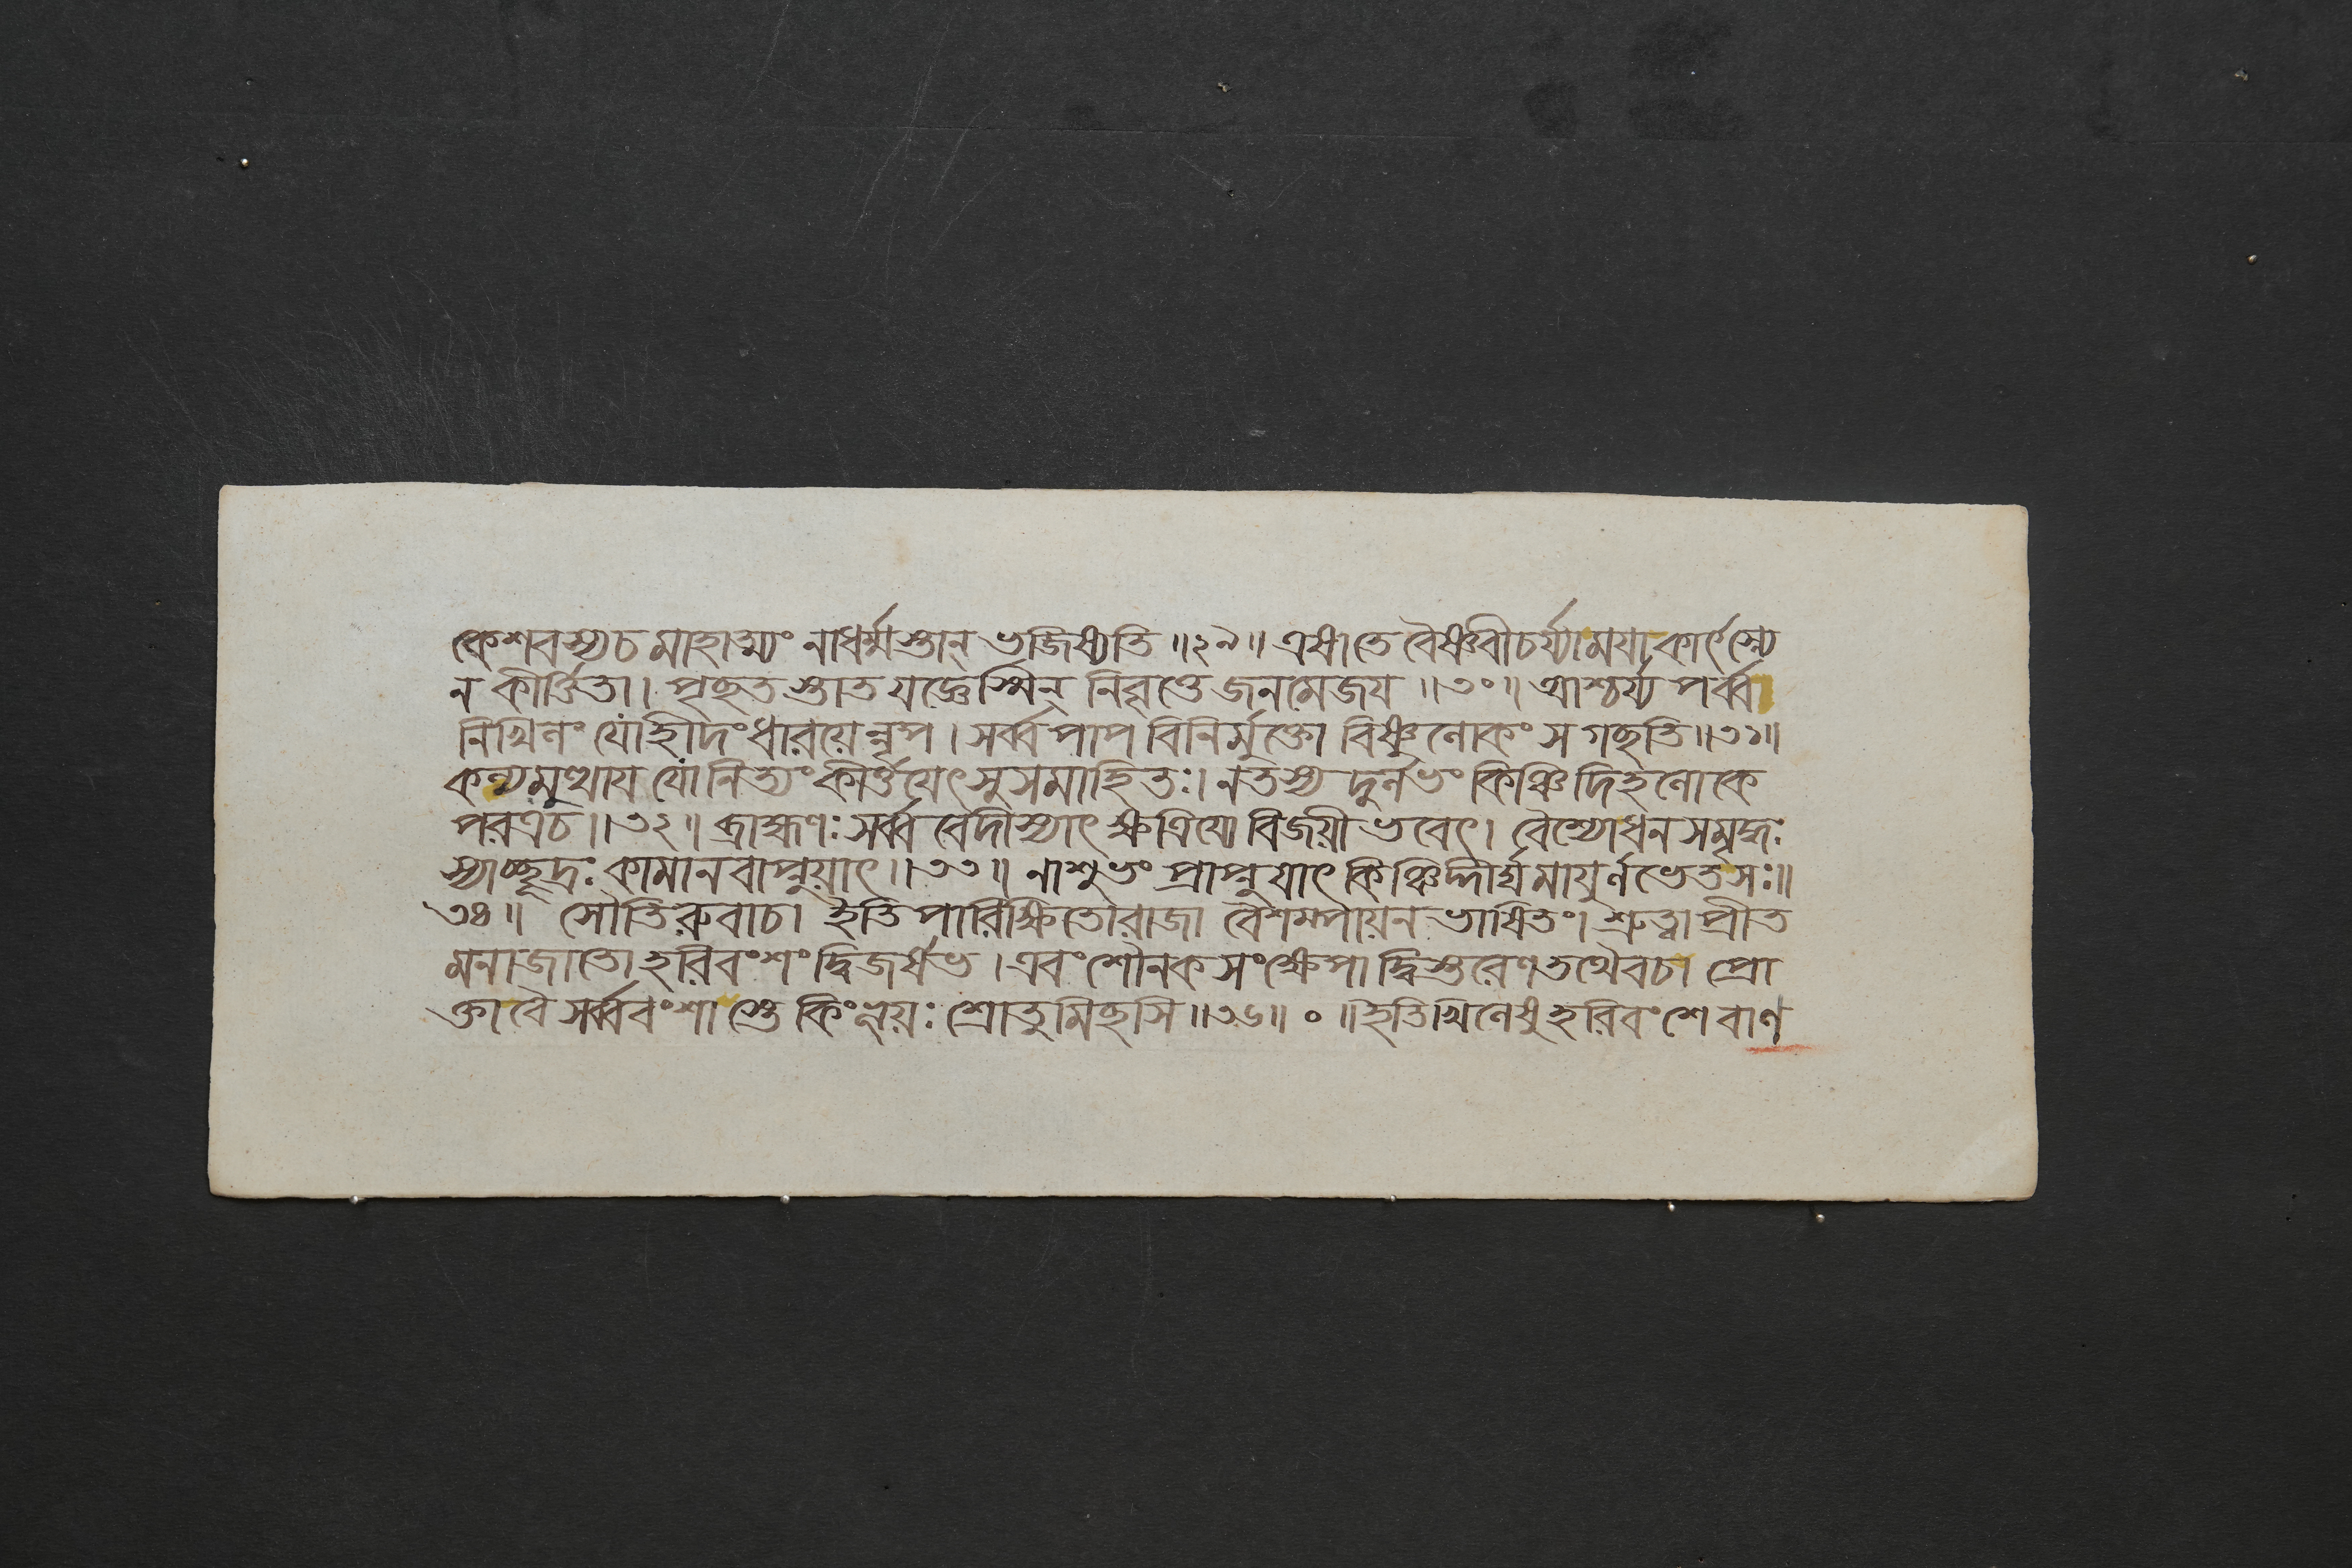 কেশবস্যচ মাহাত্ম্যং নাধর্ম্মস্তান্ ভজিষ্যতি ॥২৯॥ এষাতে বৈষ্ণবীচর্য্যাময়া কার্ৎস্ন্যে
ন কীর্ত্তিতা। পৃচ্ছতস্তাত যজ্ঞেস্মিন্ নিবৃত্তে জনমেজয় ॥৩০॥ আশ্চর্য্য পর্ব্ব
নিখিলং যোহীদং ধারয়েন্নৃপ। সর্ব্ব পাপ বিনির্মুক্তো বিষ্ণুলোকং স গচ্ছতি॥৩১॥
কল্যমুত্থায় যো নিত্যং কীর্ত্তয়েৎ সুসমাহিতঃ। নতস্য দুর্লভং কিঞ্চিদিহলোকে
পরত্রচ॥৩২॥ ব্রাহ্মণঃ সর্ব্ব বেদীস্যাৎ ক্ষত্রিয়ো বিজয়ী ভবেৎ। বৈশ্যোধন সমৃদ্ধঃ
স্যাচ্ছূদ্রঃ কামানবাপ্নুয়াৎ॥৩৩॥ নাশুভং প্রাপ্নুয়াৎ কিঞ্চিদ্দীর্ঘমায়ুর্লভেতসঃ॥
৩৪॥ সৌতিরুবাচ। ইতি পারিক্ষিতোরাজা বৈশম্পায়ন ভাষিতং। শ্রুত্বা প্রীত
মনাজাতো হরিবংশং দ্বিজর্ষভ। এবং শৌনক সংক্ষেপাদ্বিস্তরেণ তথৈবচ। প্রো
ক্তাবৈ সর্ব্ববংশাস্তে কিংভূয়ঃ শ্রোতুমিচ্ছসি॥৩৬॥ ০ ॥ইতি খিলেষু হরিবংশে বাণ